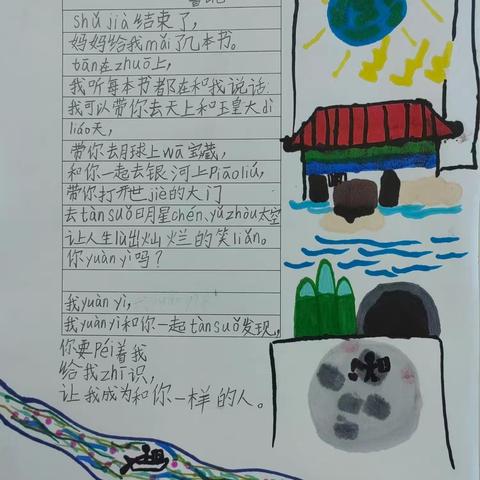 shǔ jià 结束了，
妈妈给我mǎi了几本书。
tān在zhuō上，
我听每本书都在和我说话:
我可以带你去天上和玉皇大dì
liáo天，
带你去月球上wā宝藏，
和你一起去银河上Piāoliú，
带你打开世jiè的大门
去tànsuǒ日月星chén、yǔzhòu太空
让人生lù出灿烂的笑liǎn。
你yuànyì吗？
我yuànyì，
我yuànyì和你一起tànsuǒ发现，
你要Péi着我
给我zhī识，
让我成为和你一样的人。